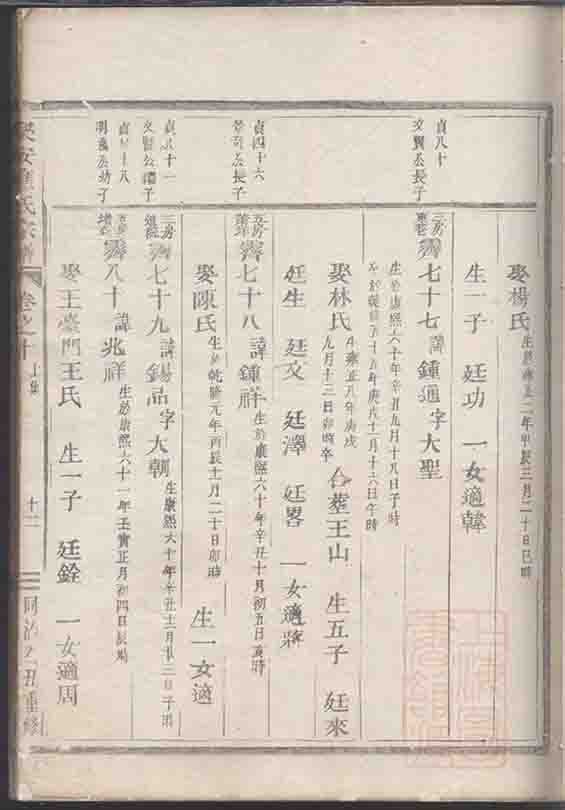 貞八十
文賢公長子
貞四十六
公長子
貞八十一
文賢公繼子
貞十八
明公幼子
娶楊氏 生於雍正二年甲辰三月二十日巳時
生一子 廷功 一女適韓
三房 霽七十七 諱鍾通 字大聖
生於康熙六十年辛丑九月十八日子時
卒於乾隆五十五年庚戌十一月十六日午時
娶林氏 生雍正八年庚戌
九月十三日卯時卒 合塟王山 生五子 廷來
廷生 廷文 廷澤 廷畧 一女適蔣
五房 霽七十八 諱鍾祥 生於康熙六十年辛丑十月初五日寅時
娶陳氏 生於乾隆元年丙辰十一月二十日卯時 生一女適
三房 霽七十九 諱錫品 字大朝 生康熙六十年辛丑十二月廿三日子時
五房 霽八十 諱兆祥 生於康熙六十一年壬寅正月初四日辰時
娶王臺門王氏 生一子 廷銓 一女適周
氏宗譜 卷之十 十二 同治乙丑重修